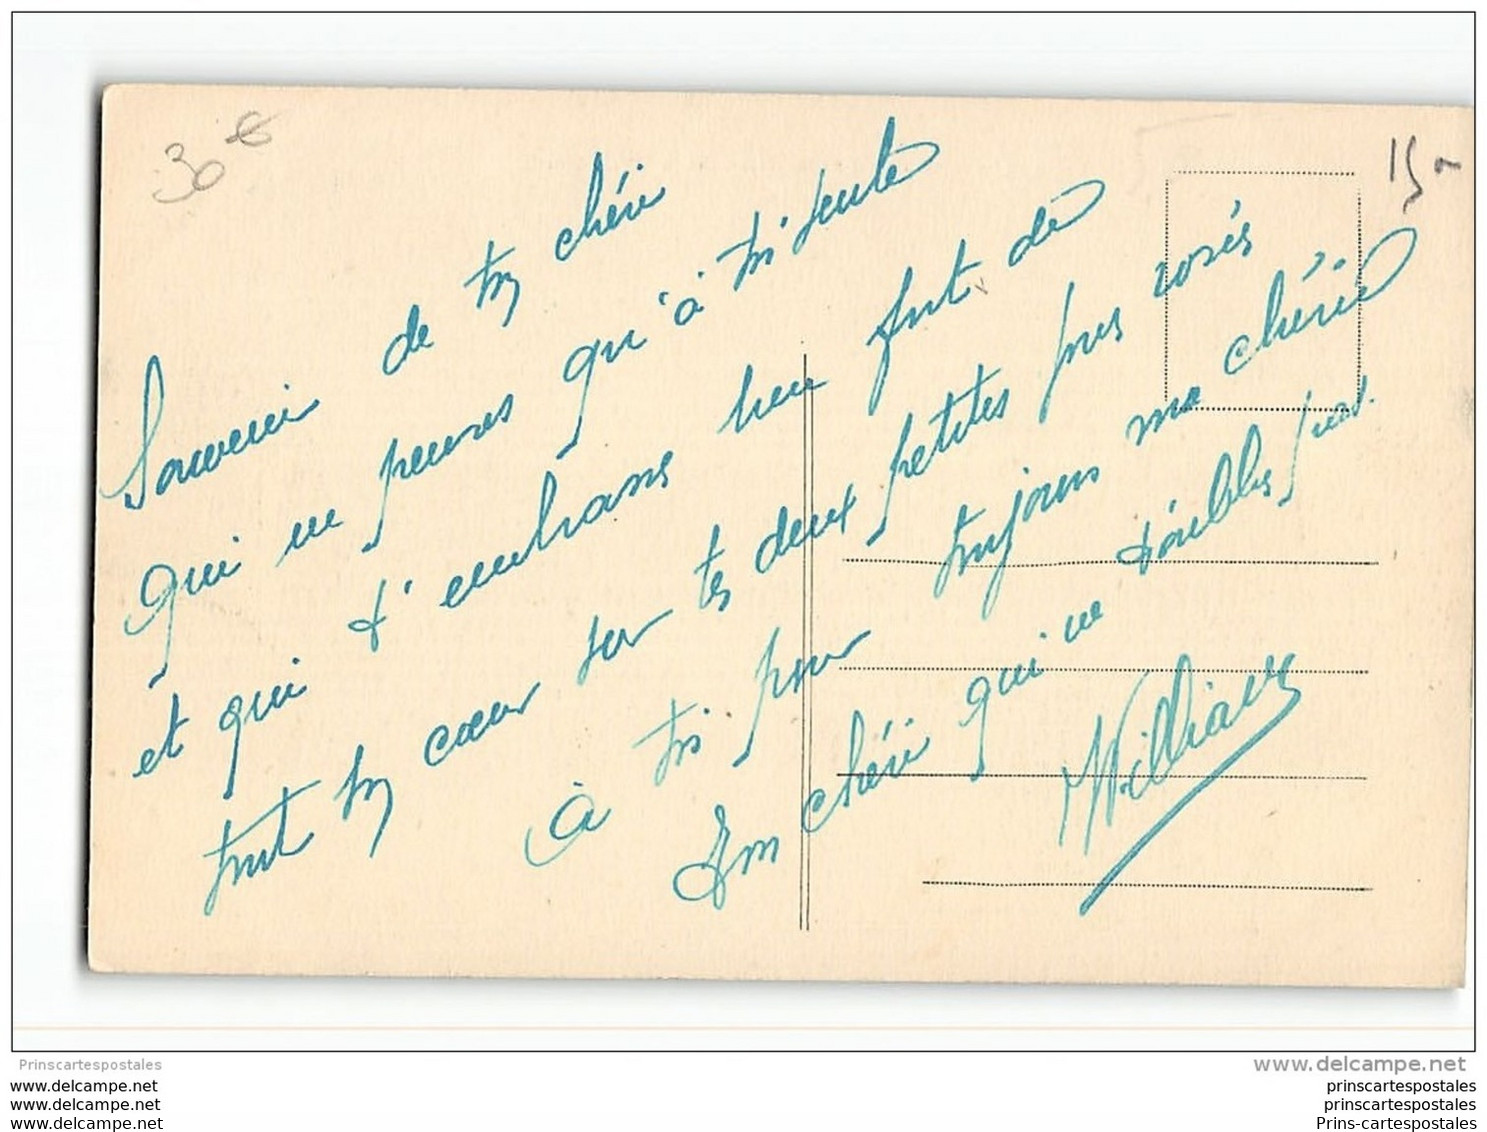 30 €
15
Souvenir de tn chéri
qui ne penses qu'à toi seule
et qui t'embrasse bien fort de
tout tn cœur sur tes deux petites joues rosés
à toi pour toujours ma chérie
Ton chéri qui ne t'oublis pas.
William
Prinscartespostales
www.delcampe.net
www.delcampe.net
www.delcampe.net
www.delcampe.net
prinscartespostales
prinscartespostales
Prins-cartespostales